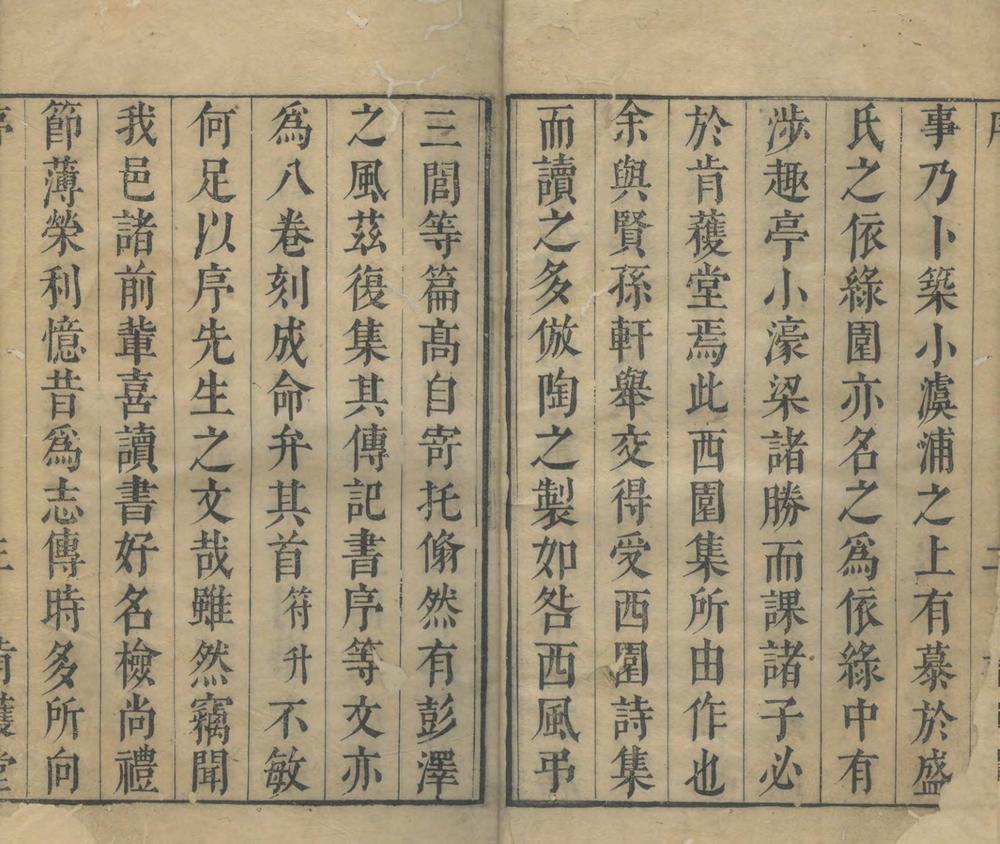 事乃卜築小澞浦之上有慕於盛
氏之依綠園亦名之爲依綠中有
涉趣亭小濠梁諸勝而課諸子必
於肯穫堂焉此西園集所由作也
余與賢孫軒舉交得受西園詩集
而讀之多倣陶之製如咎西風弔
三閭等篇高自寄托翛然有彭澤
之風茲復集其傳記書序等文亦
爲八卷刻成命弁其首符升不敏
何足以序先生之文哉雖然竊聞
我邑諸前輩喜讀書好名檢尚禮
節薄榮利憶昔爲志傳時多所向